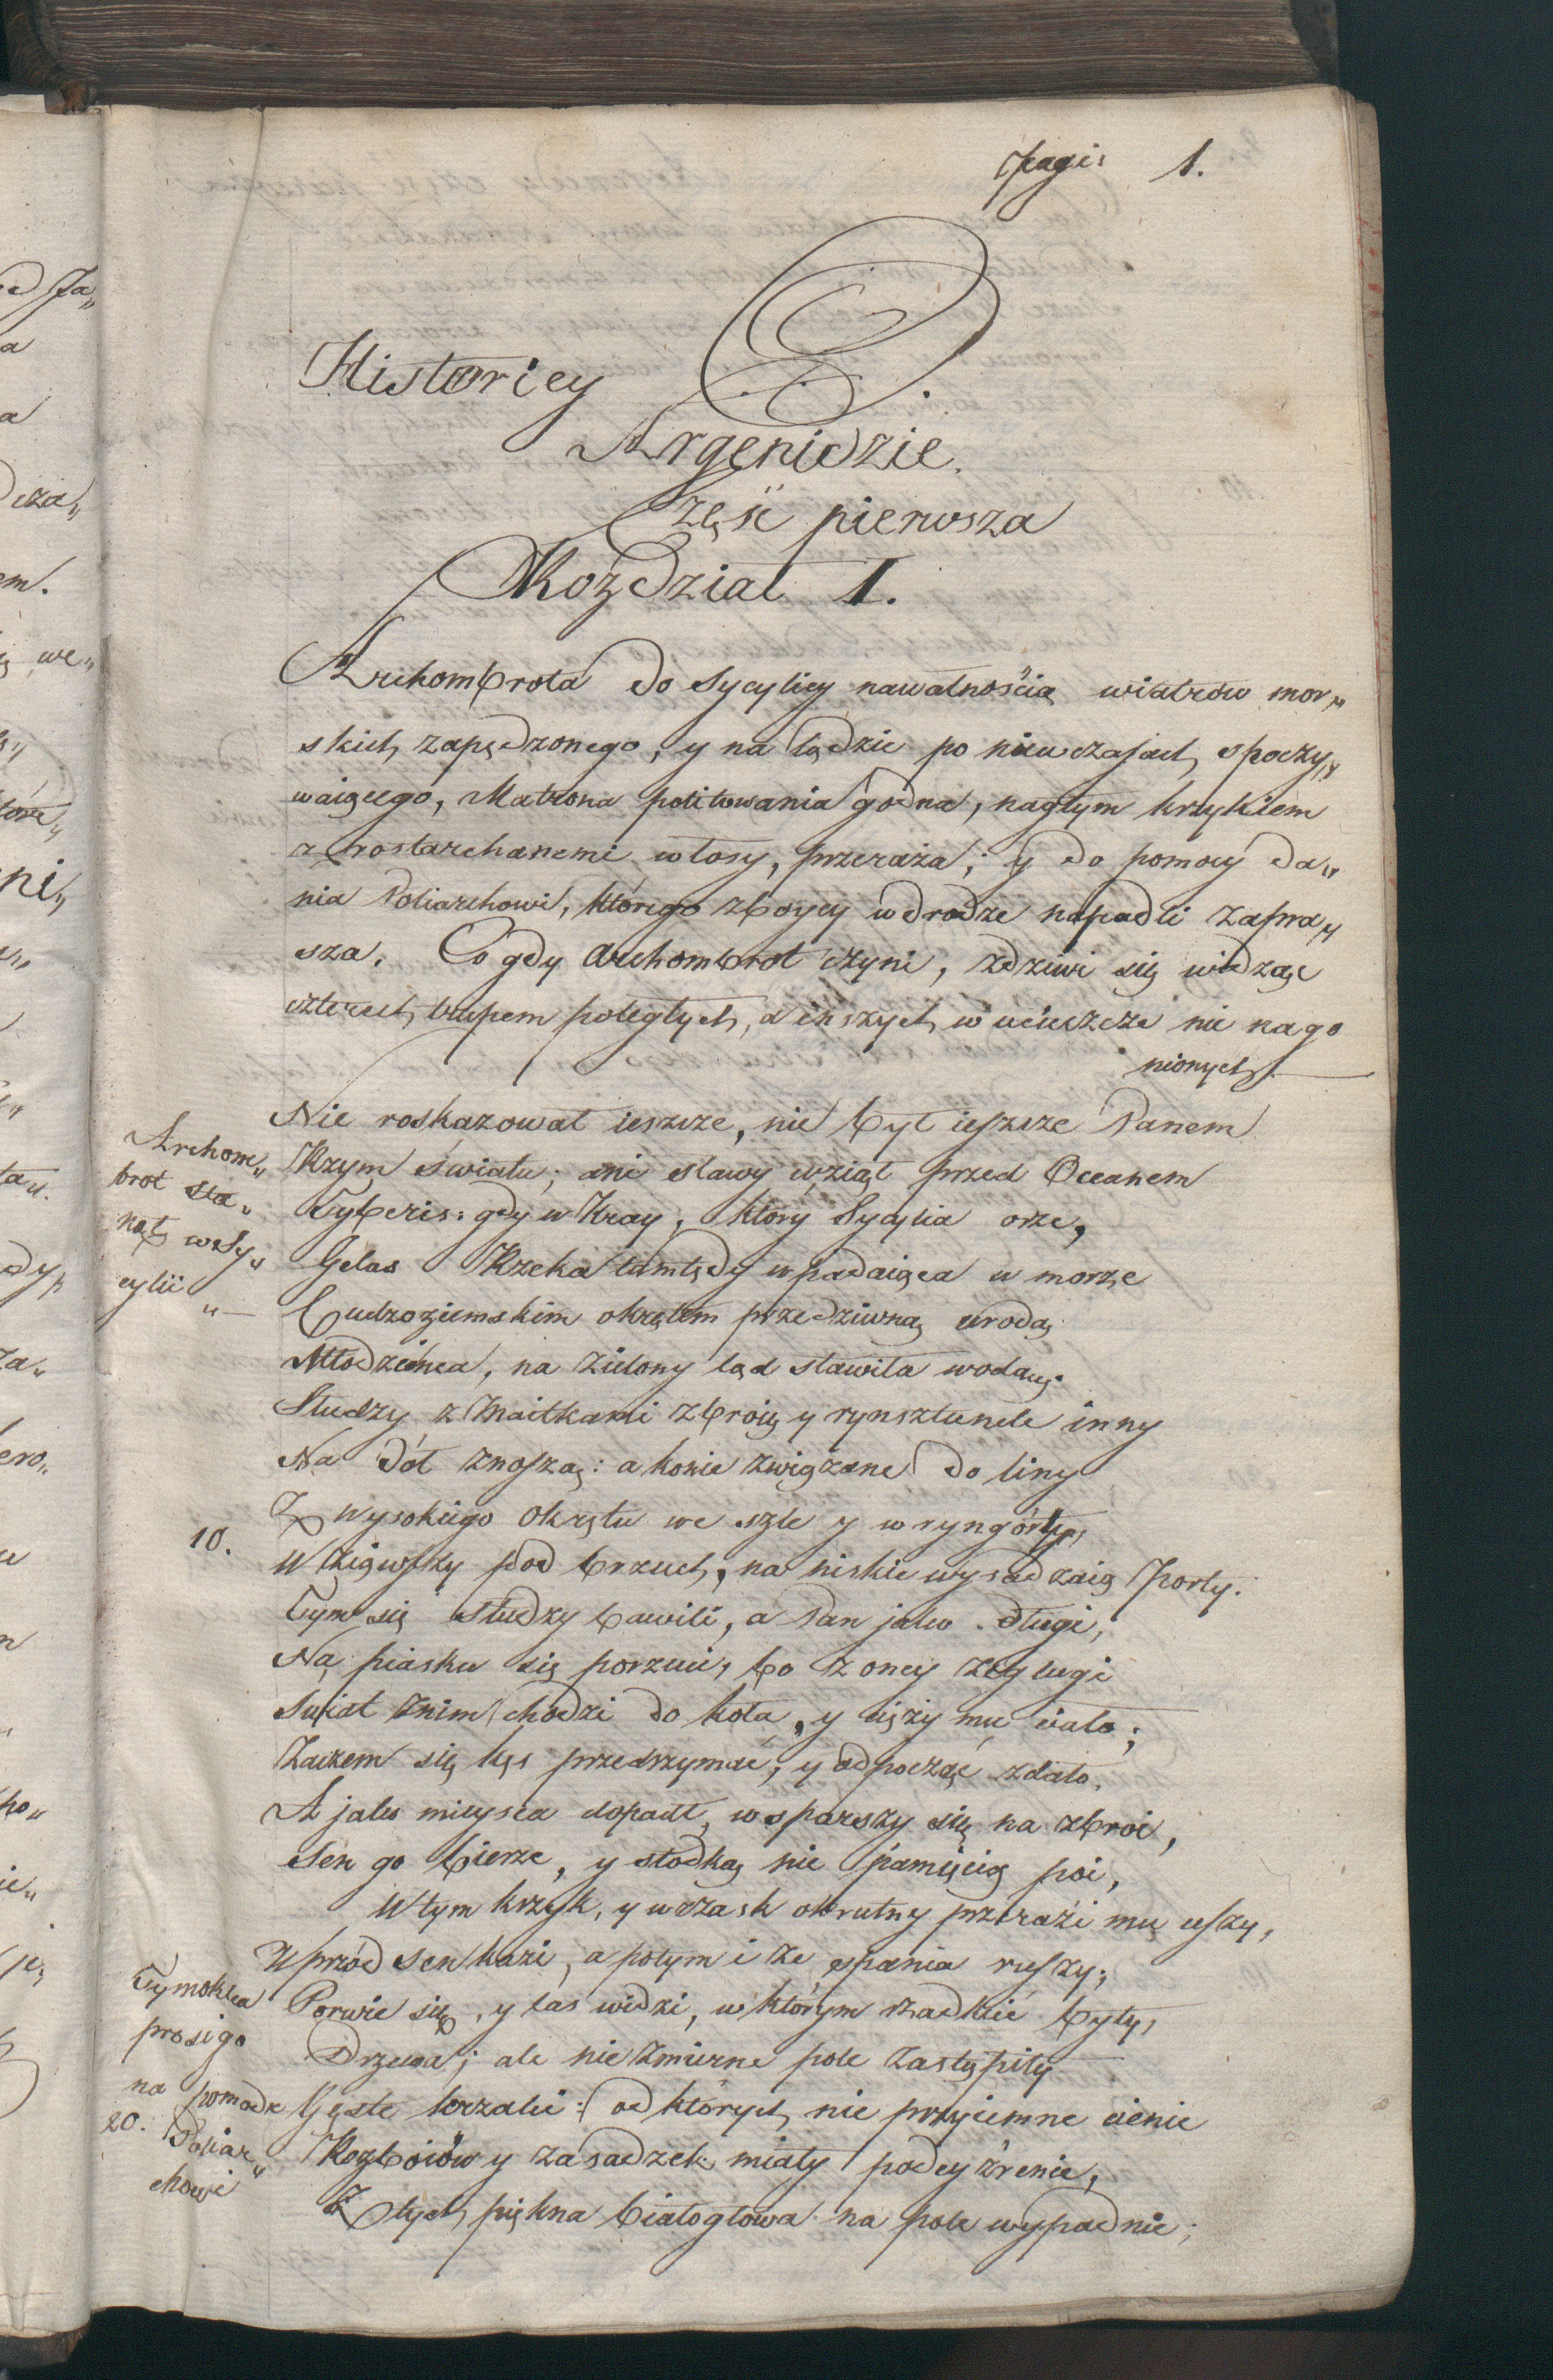 pagi: 1.
Historiey
O
Argenidzie.
Część pierwsza
Rozdział I.
Archombrota do Sycyliey nawałnością wiatrów mor„
skich zapędzonego, y na lądzie po niewczasach spoczy„
waiącego, Matrona politowania godna, nagłym krzykiem
z rostarchanemi włosy, przeraża; y do pomocy da„
nia Poliarchowi, którego zboycy w drodze napadli zapra„
sza. Co gdy Archombrot czyni, zdziwi się widząc
czterech trupem poległych, a inszych w ucieszcze nie nago
nionych.
Nie roskazował ieszcze, nie był ieszcze Panem
Rzym światu; ani sławy wziął przed Oceanem
Archom„
brot sta„
nął w Sy„
cylii „—
Tyberis: gdy w Kray, który Sycylia orze,
Gelas Rzeka tamtędy wpadaiąca w morze
Cudzoziemskim okrętem przedziwną urodą
Młodzieńca, na zielony ląd stawiła wodą.
Słudzy z Maitkami zbroię y rynsztunek inny
Na dół znoszą: a konie związane do liny
Z wysokiego okrętu we szle y w ryngórty,
10.
Wziąwszy pod brzuch, na niskie wysadzaią Porty.
Tym się słudzy bawili, a Pan jako długi,
Na piasku się porzuci, bo z oney żeglugi
Świat z nim chodzi do koła, y cięży mu ciało;
Zaczem się kęs przedrzymać, y odpocząć zdało.
A jako mieysca dopadł, wsparszy się na zbroi,
Sen go bierze, y słodką nie pamięcią poi,
W tym krzyk, y wrzask okrutny przerazi mu uszy,
Wprzód sen kazi, a potym i ze spania ruszy;
Tymoklea
prosi go
na pomoc
20. Poliar„
chowi
Porwie się, y las widzi, w którym rzadkie były,
Drzewa; ale nie zmierne pole zastąpiły
Gęste krzaki: od których nie przyiemne cienie
Rozboiów y zasadzek miały podeyźrenie,
Z tych piękna białogłowa na pole wypadnie;